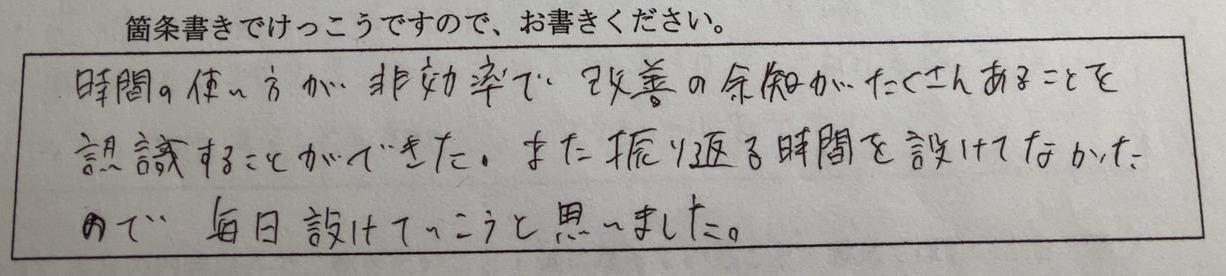 箇条書きでけっこうですので、お書きください。
時間の使い方が非効率で改善の余知がたくさんあることを
認識することができた。また振り返る時間を設けてなかった
ので毎日設けていこうと思いました。